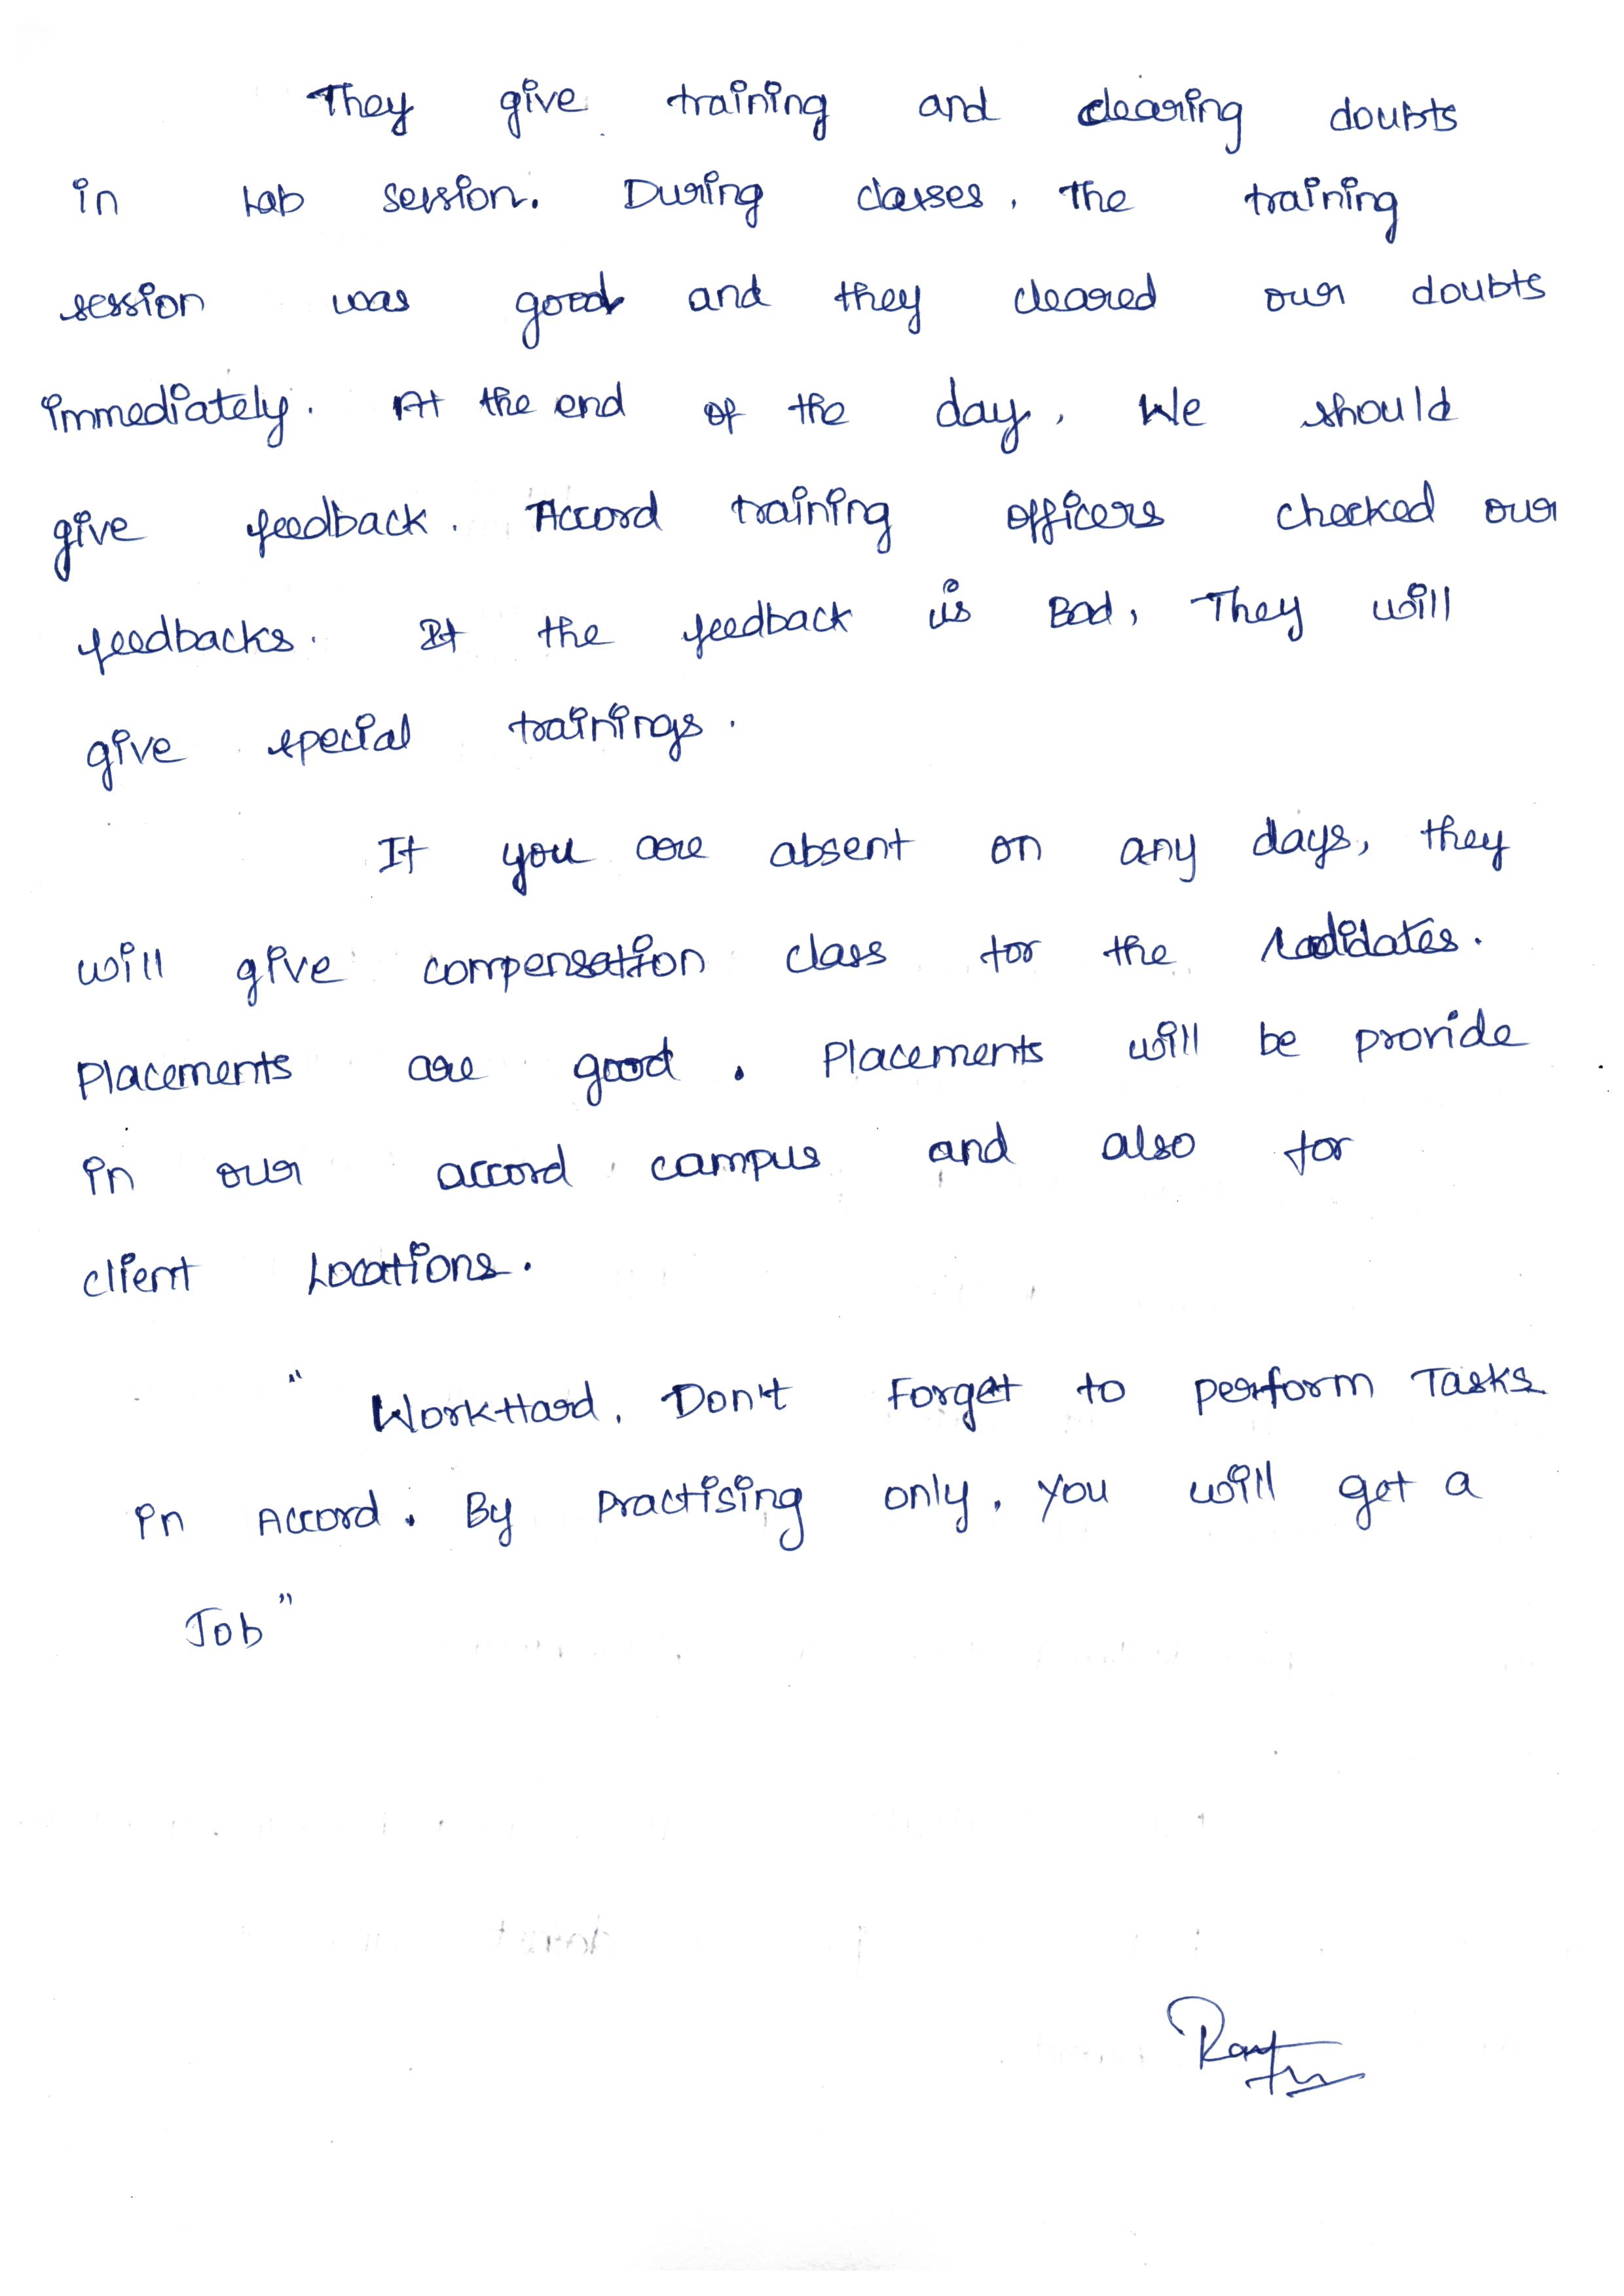 They give training and clearing doubts
in Lab session. During classes, the training
session was good and they cleared our doubts
immediately. At the end of the day, We should
give feedback. Accord training officers checked our
feedbacks. If the feedback is Bad, They will
give special trainings.
If you are absent on any days, they
will give compensation class for the cadidates.
Placements are good. Placements will be provide
in our accord campus and also for
client Locations.
" Work Hard, Don't Forget to perform Tasks
in Accord. By Practising only, you will get a
Job"